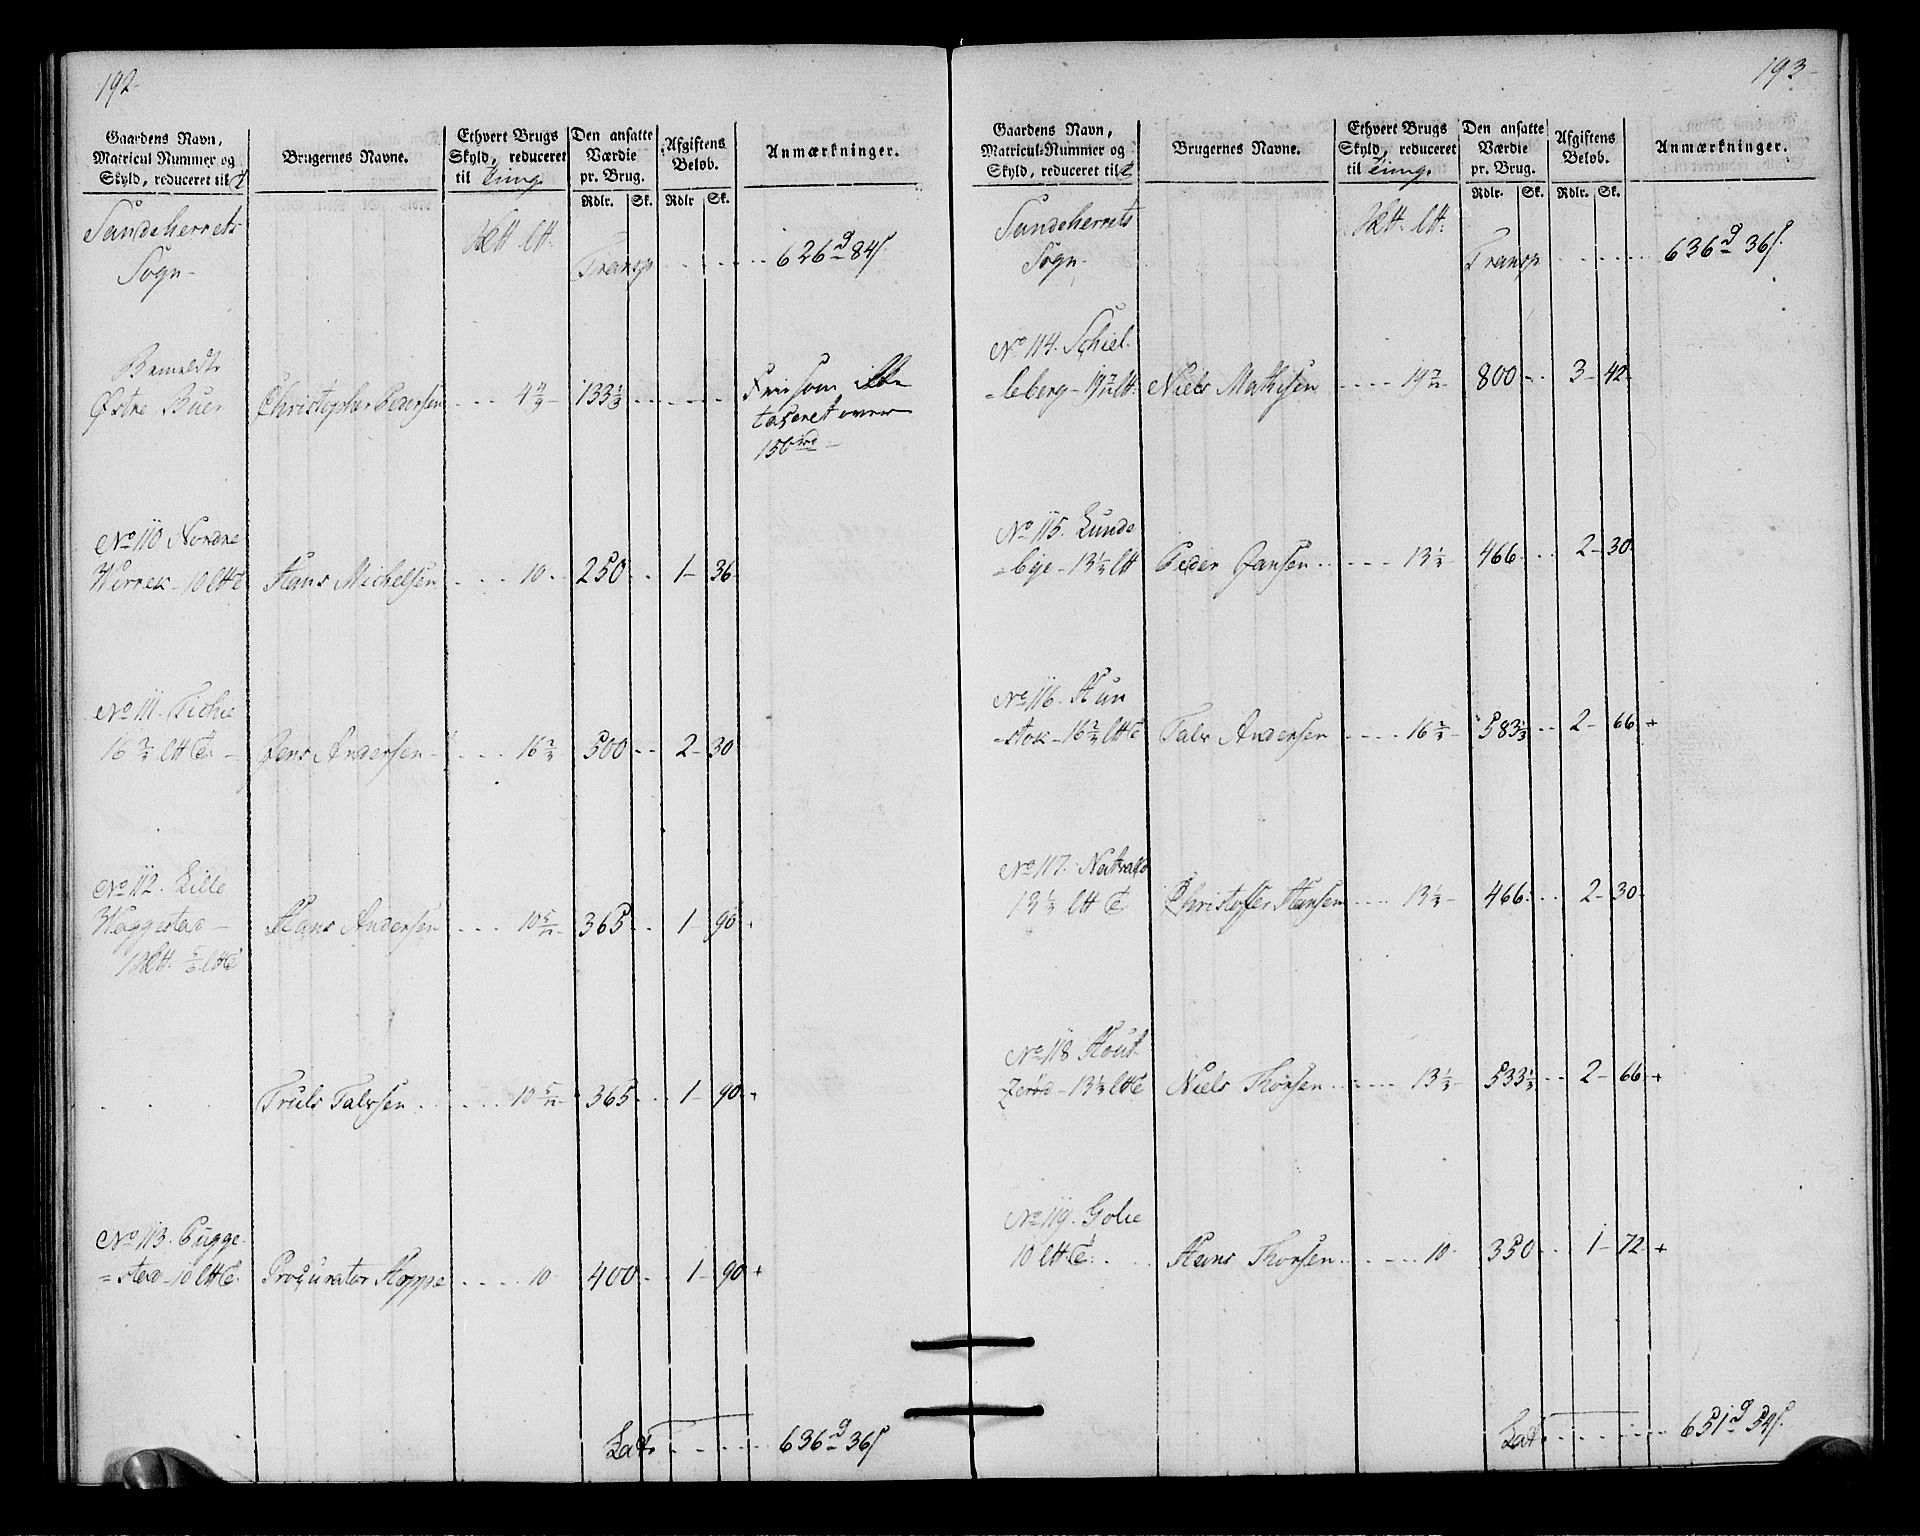 192
Gaardens Navn, Matricul Nummer og Skyld, reduceret til
Brugernes Navne.
Ethvert Brugs Skyld, reduceret til Tung.
Den ansatte Værdie pr. Brug.
Afgiftens Beløb.
Anmærkninger.
Rdlr. Sk. Rdlr Sk.
Sandeherrets
Sogn
Transp . . . . . 626 84
Bemeldte
Østre Buer Christopher Pedersen . . . 4 4/9 133 1/3 . . . . . Fri som ikke
taxeret over
150
No 110 Nordre
10 Hans Michelsen . . . 10 . 250 . . 1 - 36
No 111.
16 2/3 Jens Andersen . . . 16 2/3 500 . . 2 - 30
No 112. Lille
Waggestad
Hans Andersen . . . 10 5/12 365 . . 1 - 90
Truls Talvsen . . . 10 5/12 365 . . 1 - 90 +
No 113. Pugge-
=stad - 10 Procurator Hoppe . . . 10 400 . . 1 - 90 +
Lat. . . . . 636 36
193
Gaardens Navn, Matricul-Nummer og Skyld, reduceret til
Brugernes Navne.
Ethvert Brugs Skyld, reduceret til Tung.
Den ansatte Værdie pr. Brug.
Afgiftens Beløb.
Anmærkninger.
Rdlr. Sk. Rdlr. Sk.
Sandeherrets
Sogn
Transp . . . . . 636 36
No 114. Schiel-
=leberg Niels Mathisen . . . . 800 . . 3 - 42
No 115. Lunde
=bye - 13 1/3 Peder Jansen . . . . 13 1/3 466 . . 2 - 30
No 116. Hun
=stok - 16 2/3 Talv Andersen . . . . 16 2/3 583 1/3 . . 2 - 66 +
No 117.
13 1/3 Christoffer Hansen . . . . 13 1/3 466 . . 2 - 30
No 118
=zerød - 13 1/3 Niels Thorsen . . . . 13 1/3 533 1/3 . . 2 - 66 +
No 119. Golie
10 Hans Thorsen . . . . 10 350 . . 1 - 72 +
Lat. . . . . 651 54